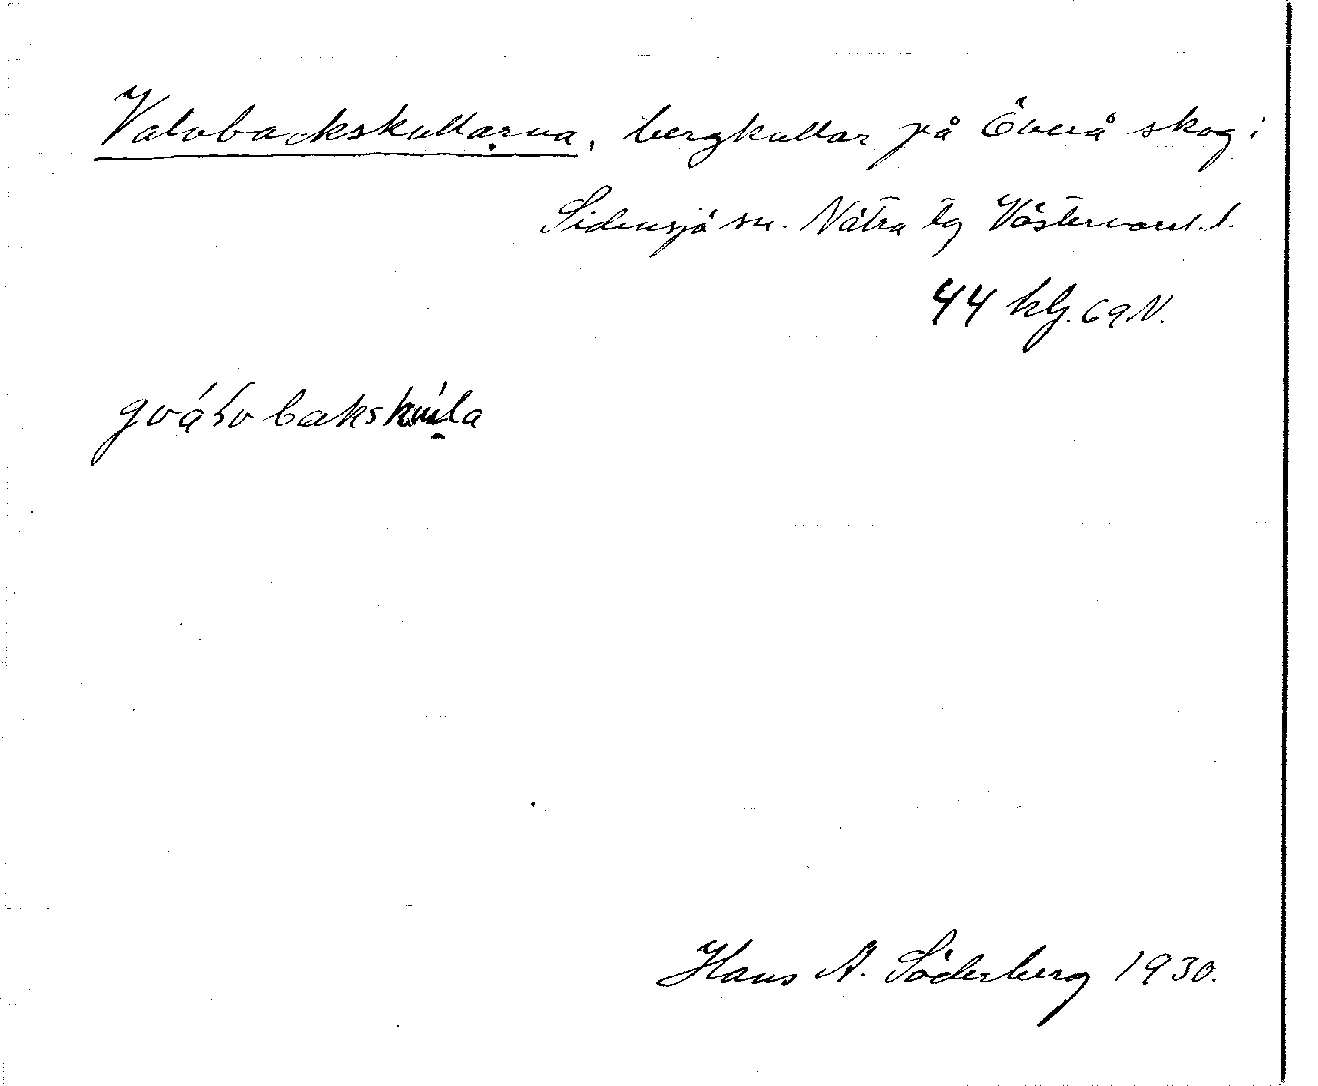 Valvbackskullarna, bergkullar på Överå skog i
Sidensjö sn. Nätra tg Västernorrl. l.
44 kbg. 69 N.
Hans A. Söderberg 1930.